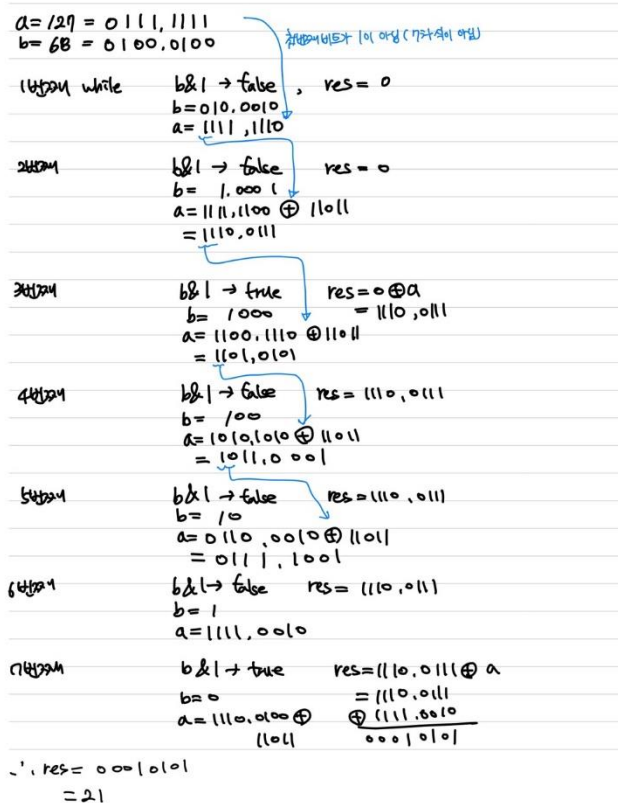 a= 127 = 0111,1111
b= 68 = 0100.0100
첫번째 비트가 1이 아님 (7차식이 아님)
1번째 while b&1 → false , res = 0
b=010.0010
a= 1111,1110
2번째 b&1 → false res = 0
b= 1.0001
a= 1111,1100 ⊕ 11011
= 1110.0111
3번째 b&1 → true res=0⊕a
b= 1000 = 1110,0111
a= 1100,1110 ⊕11011
= 1101,0101
4번째 b&1 → false res= 1110,0111
b= 100
a= 1010,1010 ⊕ 11011
= 1011,0001
5번째 b&1 → false res=1110,0111
b= 10
a= 0110,0010⊕ 11011
= 0111,1001
6번째 b&1→ false res= 1110,0111
b= 1
a=1111,0010
7번째 b&1→ true res=1110,0111⊕ a
b=0 = 1110.0111
a= 1110.0100⊕ ⊕ 1111.0010
11011 00010101
∴ res= 00010101
=21